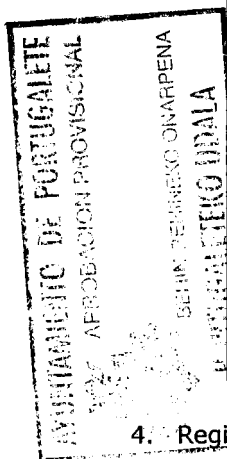 AYUNTAMIENTO DE PORTUGALETE
APROBACION PROVISIONAL
BEHIN BEHINEKO ONARPENA
UDALA
4. Regi